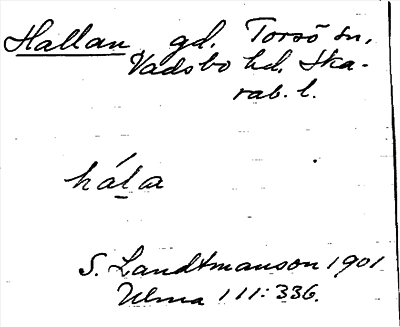 Hallan, gd. Torsö sn,
Vadsbo hd. Ska-
rab. l.
hála
S. Landtmanson 1901
Ulma 111:336.